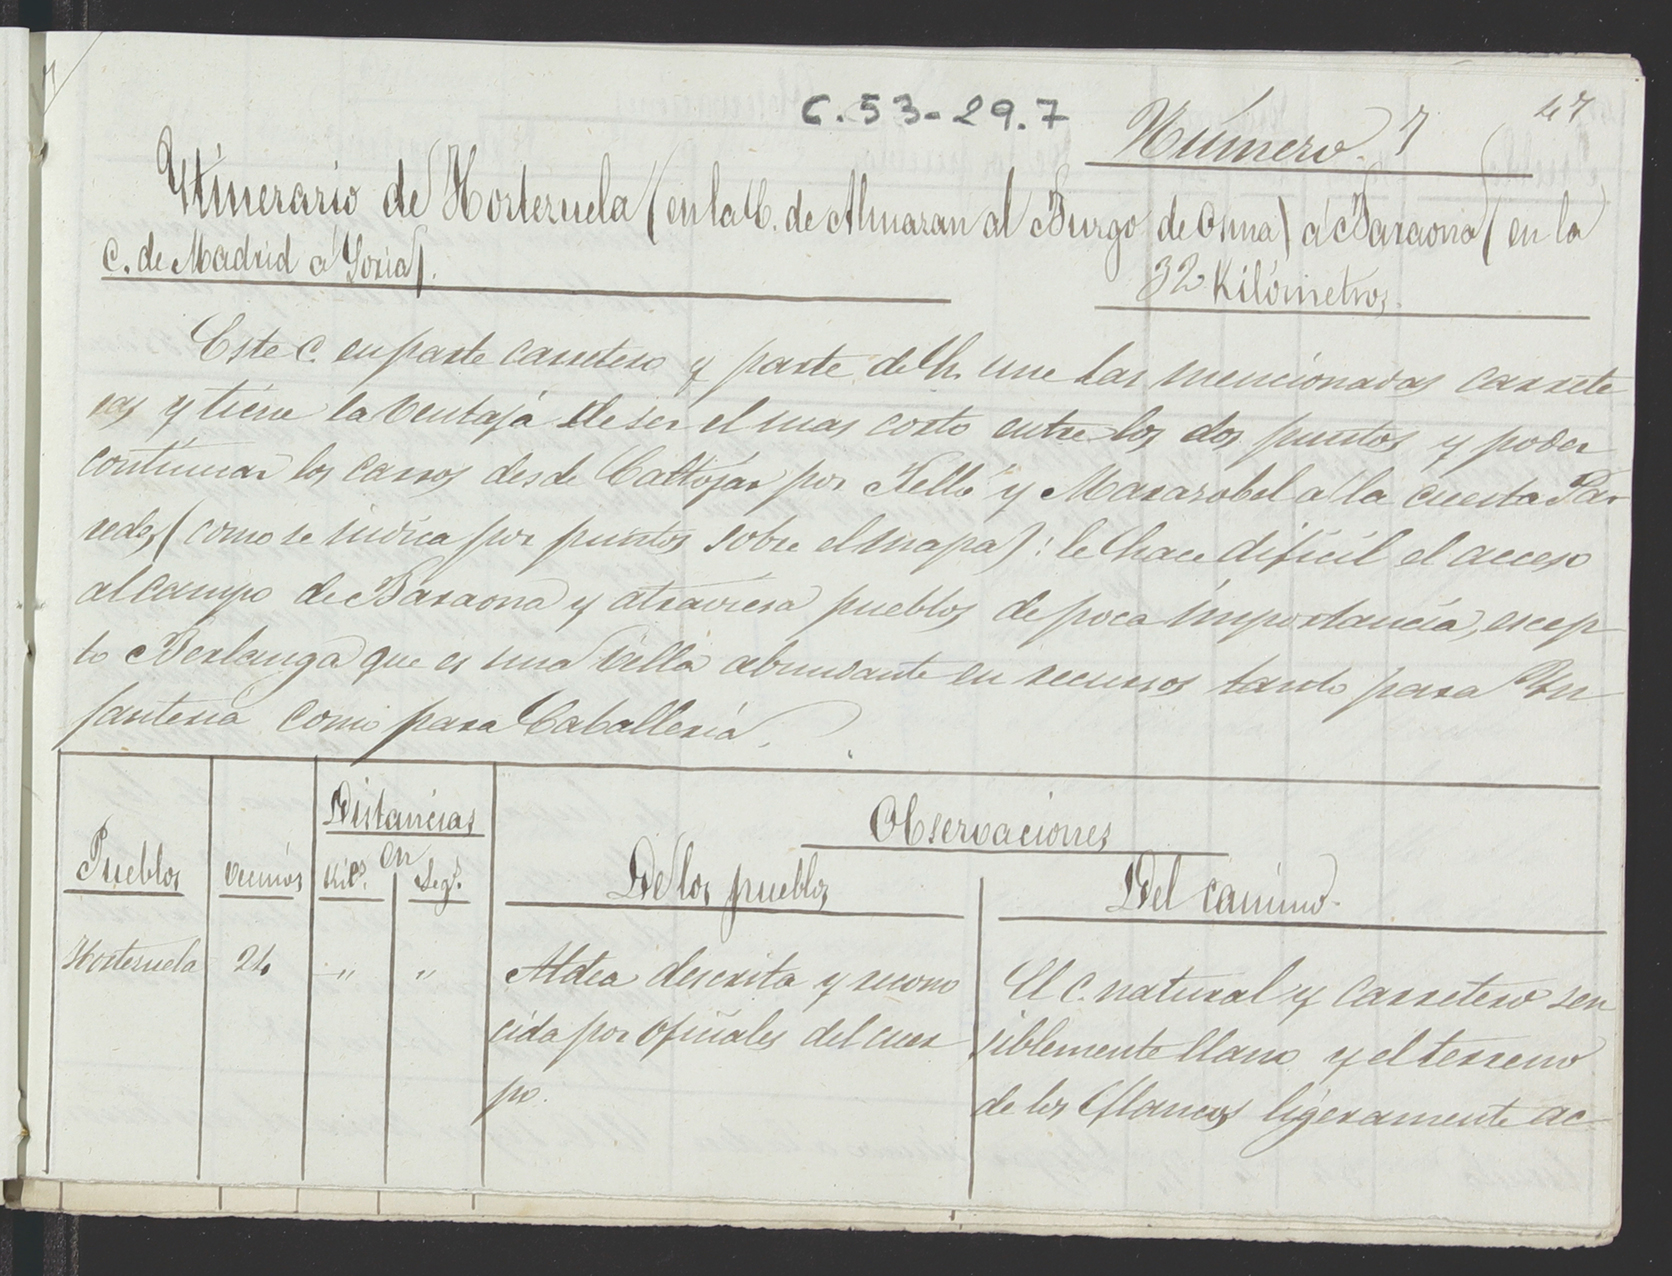 C. 53-29.7
47
Número 7
Ytinerario de Hortezuela (en la C. de Almazan al Burgo de Osma) á Baraona (en la
C. de Madrid á Soria).
32 Kilómetros.
Este C. en parte carretero y parte de h. une las mencionadas carrete
ras y tiene la ventaja de ser el mas corto entre los dos puntos y poder
continuar los carros desde Caltojar por Fello y Marazobel á la cuesta Pa-
redes (como se indica por puntos sobre el mapa): le hace dificil el acceso
al campo de Baraona y atraviesa pueblos de poca importancia, escep
to Berlanga que es una villa abundante en recursos tanto para Yn
fanteria como para Caballeria.
Pueblos
vecinos
Distancias
en
Kils.
Legs.
Observaciones
De los pueblos
Del camino.
Hortezuela 24 " "
Aldea descrita y recono
cida por oficiales del cuer
po.
El C. natural y carretero sen
siblemente llano y el terreno
de los flancos ligeramente ac-